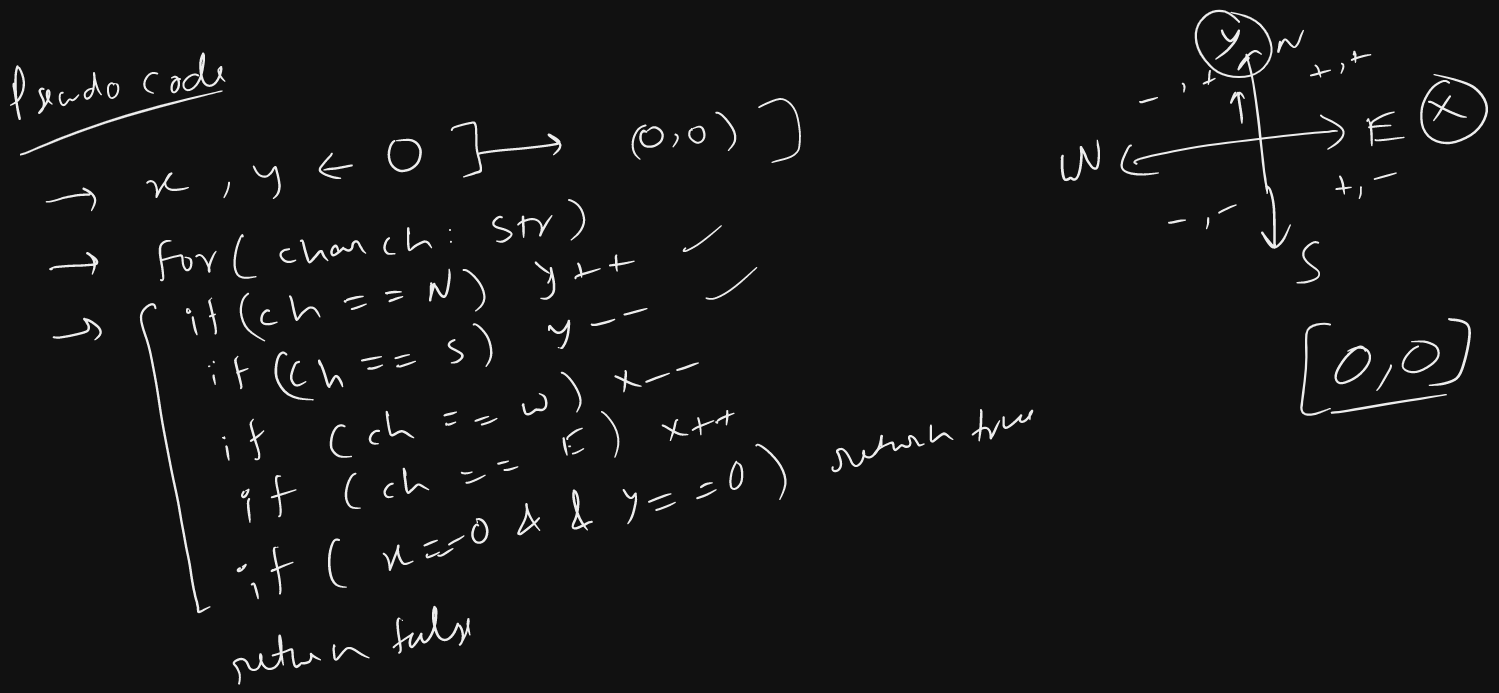 Pseudo code
→ x, y ← 0 ]→ (0,0) ]
→ for( char ch: str)
→ [ if(ch == N) y++ ✓
if(ch == S) y-- ✓
if (ch == w) x--
if (ch == E) x++
if ( x==0 && y==0) return true
return false
y N
-,+ +,+
W E X
-,- +,-
S
[0,0]